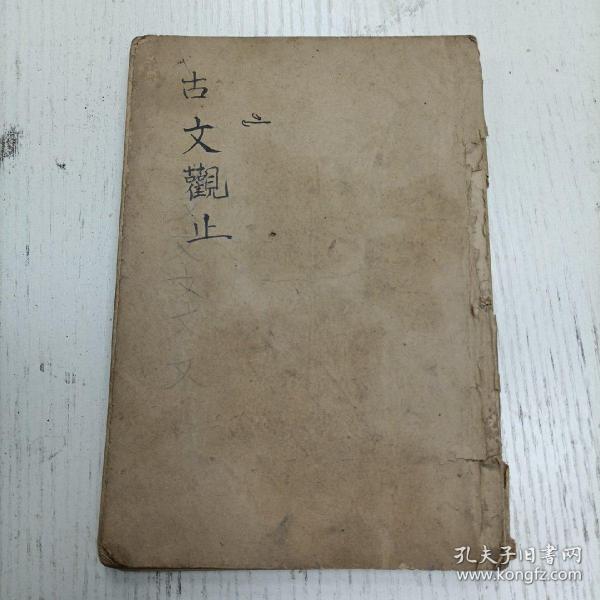 古文觀止
文文文
孔夫子旧書网
www.kongfz.com